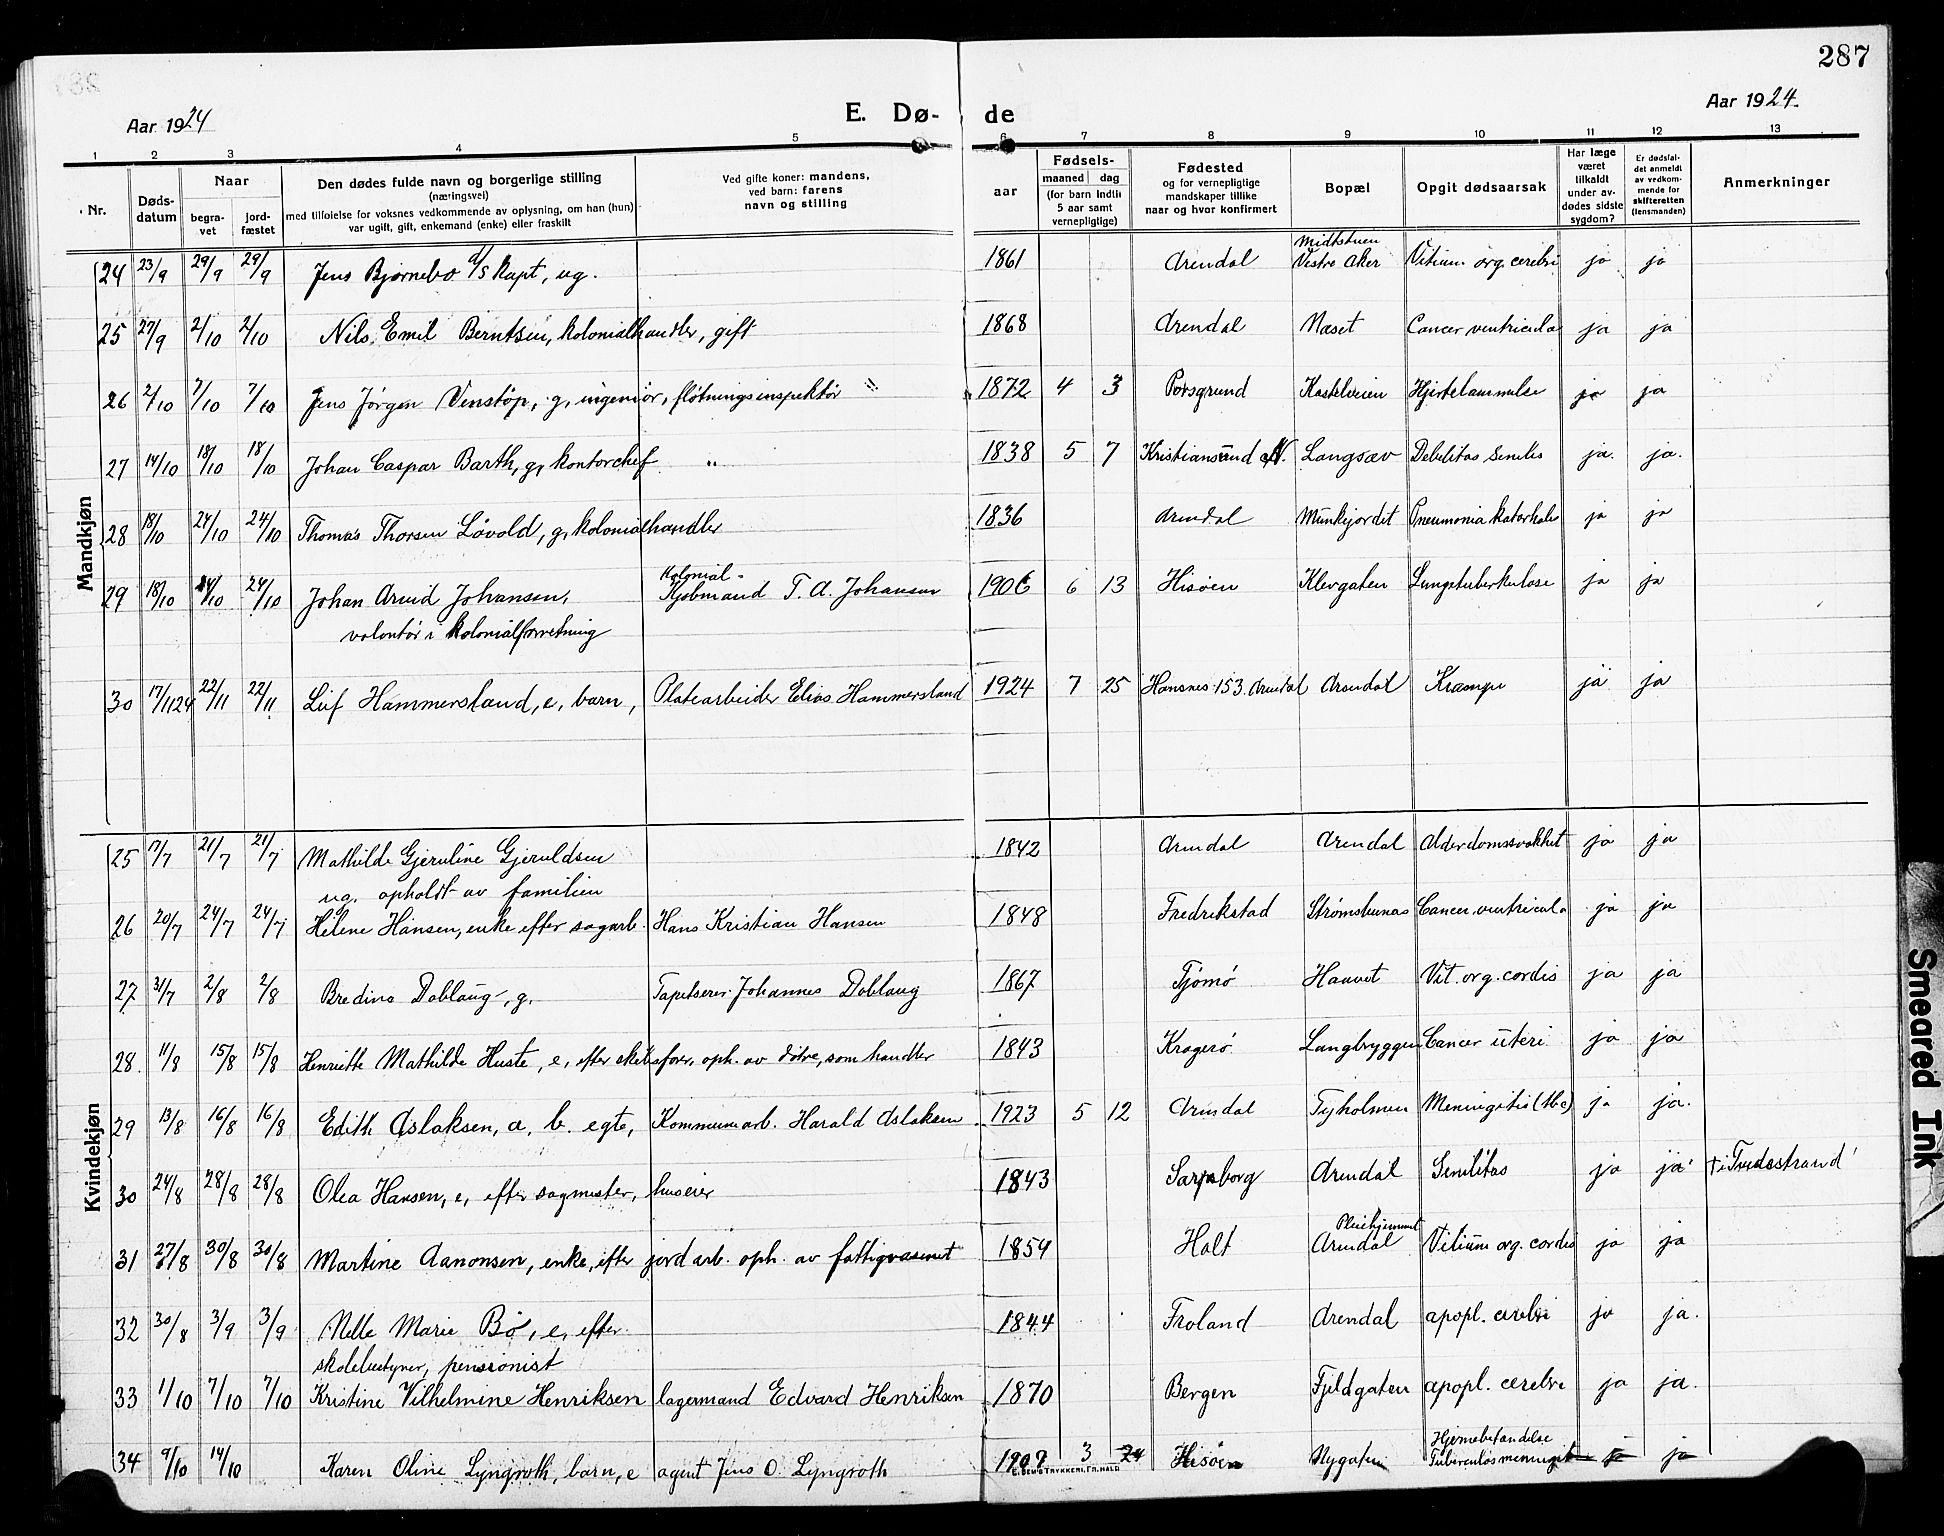 287
Aar 1924
E. Dø- de
Aar 1924.
1 2 3 4 5 6 7 8 9 10 11 12 13
Nr.
Døds-
datum
Naar
begra-
vet
jord-
fæstet
Den dødes fulde navn og borgerlige stilling
(næringsvei)
med tilføielse for voksnes vedkommende av oplysning, om han (hun)
var ugift, gift, enkemand (enke) eller fraskilt
Ved gifte koner: mandens,
ved barn: farens
navn og stilling
aar
Fødsels-
maaned dag
(for barn indtil
5 aar samt
vernepligtige)
Fødested
og for vernepligtige
mandskaper tillike
naar og hvor konfirmert
Bopæl
Opgit dødsaarsak
Har læge
været
tilkaldt
under av-
dødes sidste
sygdom?
Er dødsfal-
det anmeldt
av vedkom-
mende for
skifteretten
(lensmanden)
Anmerkninger
Mandkjøn
Midtstuen
24 23/9 29/9 29/9 Jens Bjørnebo d/s kapt, ug. 1861 Arendal Vestre Aker Vitium org. cerebri ja ja
25 27/9 2/10 2/10 Nils Emil Berntsen, kolonialhandler, gift 1868 Arendal Næset Cancer ventricula ja ja
26 2/10 7/10 7/10 Jens Jørgen Venstøp, g, ingeniør, fløtningsinspektør " 1872 4 3 Porsgrund Kastelveien Hjertelammelse ja ja
27 14/10 18/10 18/10 Johan Caspar Barth, g, kontorchef " 1838 5 7 Kristiansund N. Langsæv Debilitas senilis ja. ja.
28 18/10 24/10 24/10 Thomas Thorsen Løvold, g, kolonialhandler 1836 Arendal Munkejordet Pneumonia katarhalis ja ja
Kolonial-
29 18/10 24/10 24/10 Johan Arvid Johansen, Kjøbmand T. A. Johansen 1906 6 13 Hisøen Klevgaten Lungetuberkulose ja ja
volontør i kolonialforretning
30 17/11 24 22/11 22/11 Leif Hammersland, e, barn, Platearbeider Elias Hammersland 1924 7 25 Hansnes 153. Arendal Arendal Krampe ja ja
Kvindekjøn
25 7/7 21/7 21/7 Mathilde Gjeruline Gjeruldsen 1842 Arendal Arendal Alderdomssvakhet ja ja
ug. opholdt av familien
26 20/7 24/7 24/7 Helene Hansen, enke efter sagarb. Hans Kristian Hansen 1848 Fredrikstad Strømsbunas Cancer ventricula ja ja
27 31/7 2/8 2/8 Bredine Doblaug, g. Tapetserer Johannes Doblaug 1867 Tjømø Haavet Vit. org. cordis ja ja
28. 11/8 15/8 15/8 Henriette Mathilde Huste, e, efter skibsfører, oph. av døtre, som handler 1843 Kragerø Langbryggen Cancer uteri ja ja
29 13/8 16/8 16/8 Edith Aslaksen, a, b. egte, Kommunearb. Harald Aslaksen 1923 5 12 Arendal Tyholmen Meningitis (tbc) ja ja.
30 24/8 28/8 28/8 Olea Hansen, e, efter sagmester, huseier 1843 Sarpsborg Arendal Senilitas ja ja † i Tvedestrand
Pleiehjemmet
31 27/8 30/8 30/8 Martine Aanonsen, enke, efter jordarb. oph. av fattigvæsenet 1859 Holt Arendal Vitium org. cordis ja ja
32 30/8 3/9 3/9 Nelle Marie Bø, e, efter 1844 Froland Arendal apopl. cerebri ja ja.
skolebestyrer, pensionist
33 1/10 7/10 7/10 Kristine Vilhelmine Henriksen lagermand Edvard Henriksen 1870 Bergen Fjeldgaten apopl. cerebri ja ja.
Hjernebetændelse
34 9/10 14/10 Karen Oline Lyngroth, barn, e agent Jens O. Lyngroth 1909 3 24 Hisøen Nygaten Tuberculøs meningit ja ja
E. SEMS TRYKKERI, FR.HALD
Smeared Ink